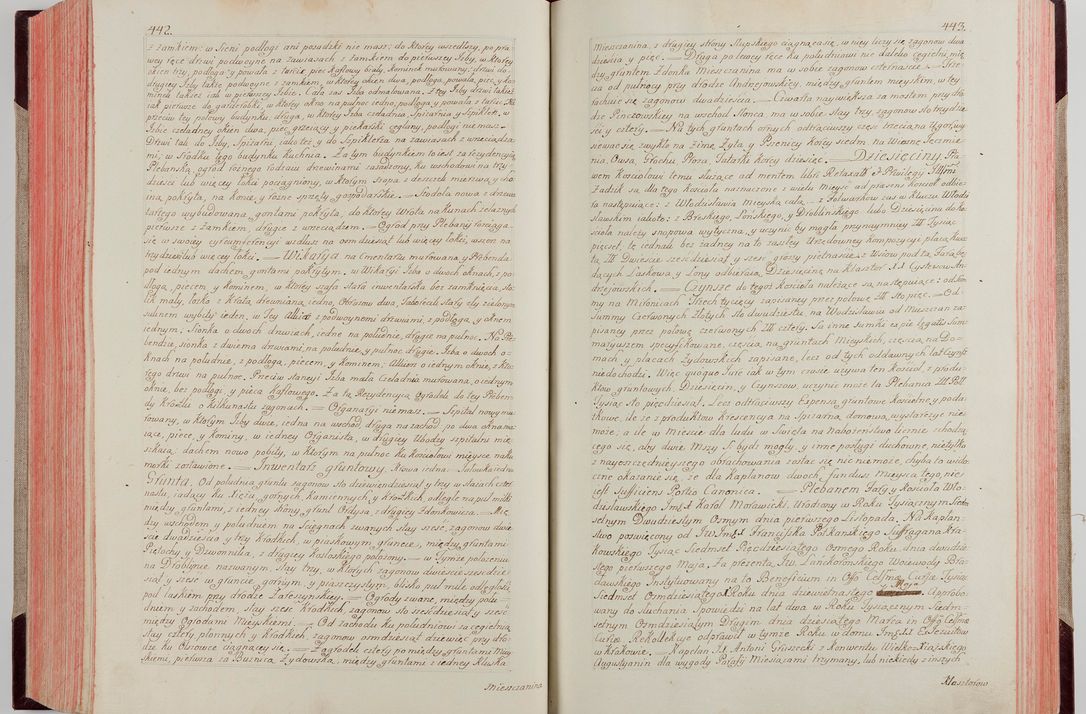 442.
z Zamkiem: w Sieni podłogi ani posadzki nie masz; do ktorey wszedłszy, po pra-
wey ręce drzwi podwoyne na zawiasach z Zamkiem do pierwszey Izby, w ktorey
okien trzy, podłoga, y powała z tarcic, piec kaflowy biały, kominek murowany; drzwi do
drugiey Izby także podwoyne z zamkiem, w ktorey okien dwa, podłoga, powała, piec, y ko-
minek takież iak w pierwszey Izbie. Cała zaś Izba odmalowana. z tey Izby drzwi takież
iak pierwsze do garderobki, w ktorey okno na pulnoc iedno, podłoga y powała z tarcic. Na
przeciw tey połowy budynku, długa, w ktorey Izba czeladna, Spizarnia y Szpiklerz, w
Izbie czeladney okien dwa, piec grzeiący y piekarski ceglany, podłogi nie masz.
Drzwi tak do Izby, Spizarni, iako też y do Szpiklerza na zawiasach z wrzeciądza-
mi, w środku tego budynku kuchnia. Za tym budynkiem to iest za Rezydencyą
Plebańską, ogrod rożnego rodzaiu drzewinami zasadzony, ku wschodowi na trzy-
dzieści lub więcey łokci pociągniony, w ktorym szopa z deszczek mieysca, y sło-
mą pokryta, na konie, y rożne sprzęty gospodarskie. Stodoła nowa z drzewa
tartego wybudowana, gontami pokryta, do ktorey Wrota na kunach żelaznych
pierwsze z Zamkiem, drugie z wrzeciądzem. — Ogrod przy Plebanij rozciąga-
się w swoiey cyrkumferencyi wzdłuż na osmdziesiąt lub więcey łokci, wszerz na
trzydzieści lub więcey łokci. — Wikarya na Cmentarzu murowana, y Prebenda
pod iednym dachem gontami pokrytym. w Wikaryi Izba o dwoch oknach, po-
dłogą, piecem, y kominem, w ktorey szafa stała inwentarska bez zamknięcia, sto-
lik mały, łożko z Krata drewniana, iedno, Obrazow dwa, Taboreciki stary,
suknem wybity ieden, w Tey Alkierz z podwoynemi drzwiami, z podłogą, y oknem
iednym. Sionka o dwoch drzwiach, iedne na południe, drugie na pulnoc. Na Pre-
bendzie, sionka z dwiema drzwiami, na południe, y pulnoc drugie. Izba o dwoch o-
knach na południe, z podłogą, piecem, y kominem; Alkierz o iednym oknie, z kto-
rego drzwi na pulnoc. Przeciw stancyi Izba mała Czeladnia murowana, o iednym
oknie, bez podłogi, y pieca kaflowego. Za tą Rezydencyą Ogrodek do tey Preben-
dy krotki o kilkunastu zagonach. — Organaryi nie masz. — Szpital nowy mu-
rowany, w ktorym Izby dwie, iedna na wschod, druga na zachod, po dwa okna ma-
iące, piece, y kominy, w iedney Organista, w drugiey Ubodzy szpitalni mie-
szkaią, dachem nowo pobity, w ktorym na pulnoc ku kosciołowi mieysce na ko-
morki zostawione. — Inwentarz gruntowy.
Grunta. Od południa gruntu zagonow sto dziewięćdziesiąt y trzy w staiach czter-
nastu, iadący ku Sieia, gornych, kamiennych, y krotkich, odległe na puł mili
między gruntami, z iedney strony grunt Ordysa, z drugiey Zdankowicza. — Mię-
dzy wschodem y południem na Sciegnach zwanych, stay sześć, zagonow dwie-
scie dwadzieścia y trzy krotkich, w piaskowym gruncie, między gruntami
Pielochy y Dzwonnika, z drugiey Kosłoskiego położony. — w Tymże położeniu
na Droblinie nazwanym, Stay trzy, w ktorych zagonow dwieście sześćdzie-
siąt y sześć w gruncie, gornym, y piaszczystym, blisko puł mile odległości,
pod laskiem przy drodze Zaleszyńskiey. — Ogrody zwane, między połu-
dniem y zachodem, stay sześć krotkich, zagonow sto sześćdziesiąt y sześć
między Ogrodami Mieyskiemi. — Od zachodu ku południowi za cegielnią
stay cztery płonnych y krotkich, zagonow osmdziesiąt dziewięć przy dro-
dze ku Olszowce ciągnący się. — Zagrodek cztery po między gruntami Miey-
skiemi, pierwsza za Bużnicą Zydowską, między gruntami z iedney Kluska
Mieszczanina
443.
Mieszczanina, z drugiey strony Słupskiego ciągnącasię, w niey liczy się zagonow dwa-
dzieścia y pięć. — Druga po lewey ręce ku południowi nie daleko cegielni mię-
dzy gruntem Zdonka Mieszczanina ma w sobie zagonow czternaście. — Trze-
cia od pulnocy przy drodze Andrzeiowskiey, między gruntem mieyskim, w tey
rachuie się zagonow dwadzieścia. — Czwarta naywiększa za mostem przy dro-
dze Pinczowskiey na wschod Słońca ma w sobie stay trzy zagonow sto trzydzie-
ści y cztery. — Na tych gruntach ornych odtrąciwszy część trzecią na Ugorwy-
siewać się zwykło na Zimę, Żyta y Pszenicy korcy siedm, na Wiosnę Ięczmie-
nia, Owsa, Grochu, Prosa, Tatarki korcy dziesięć. — Dziesięciny Pra-
wem Kościołowi temu służące ad mentem libri Retaxat: & Privilegij Illmi
Zadzik są, dla tego Kościoła naznaczone z wielu mieysc ad praesens Kościoł odbie-
ra następuiące: z Włodzisławia mieyska cała, — z Folwarkow zaś w kluczu Włodzi-
sławskim iakoto: z Brzeskiego, Łońskiego, y Droblińskiego lubo Dziesięcina do Ko-
ścioła należy snopowa, wytyczna, y uczynić by mogła przynaymniey Złł Tysiąc
pięćset, te iednak bez żadney na to zaszłey Urzędowney kompozycyi, płacą, kwo-
tą Złł Dwieście sześćdziesiąt y sześć groszy piętnaście. z Wsiow pod tą Parafią bę-
dących Laskowa y Łony odbierają Dziesięcinę na Klasztor XX Cystersow An-
drzeiowskich. — Czynsze do tegoż Kościoła należące są następuiące: od Sum-
my na Misionicach Trzech tysięcy zapisaney przez połowę Złł sto pięć. — Od
Summy Czerwonych Złotych Sto dwudziestu, na Wodzisławiu od Mieszczan za-
pisaney przez połowę czerwonych Złł cztery. Są inne Sumki za pie Legatis Sum-
maryuszem specyfikowane, częścią, na gruntach Mieyskich, częścią, na Do-
mach, y placach Zydowskich zapisane, lecz od tych oddawnych lat czynsz
niedochodzi. Więc quoquo Iure iak w tym czasie używa ten Kościoł, z produ-
ktow gruntowych, Dziesięcin, y Czynszow, uczynić może ta Plebania Złł Poll:
Tysiąc sto pięćdziesiąt. Lecz odtrąciwszy Expensa gruntowe, kościelne, y poda-
tkowe, ile że z produktow krescencya na Spizarnią domową wystarczyć nie-
może, a ile w Mieście dla ludu w Swięta na Nabożeństwo licznie schodzą-
cego się, aby dwie Mszy S. bydz mogły, y inne posługi duchowne, nietylko
z nayoszczędnieyszego obrachowania zostać się nic nie może, chyba to wido-
czne okazanie się, że dla Kapłanow dwoch fundusz mieysca tego nie-
jest Sufficiens Portio Canonica. — Plebanem Iaży, y Kościoła Wło-
dzisławskiego Imść X Karol Morawiecki, Urodzony w Roku Tysiącznym Siedm-
setnym Dwudziestym Osmym dnia pierwszego Listopada, Na Kapłań-
stwo poświęcony od JW Imści X: Franciszka Potkańskiego Suffragana Kra-
kowskiego Tysiąc Siedmset Pięćdziesiątego Osmego Roku, dnia dwudzie-
stego pierwszego Maja. Za prezentą JW. Lanckorońskiego Woiewody Bra-
cławskiego Instytuowany na to Beneficium in Offo Celsmae Curiae, Tysiąc
Siedmset Osmdziesiątego Roku dnia dziewiętnastego Maja. Approbo-
wany do słuchania Spowiedzi na lat dwa w Roku Tysiącznym Siedm-
setnym Osmdziesiątym Drugim dnia dziesiątego Marca in Offo Celsmae
Curiae. Rekollekcye odprawił w tymże Roku w domu Imść XX ExJezuitow
w Krakowie. — Kapelan X. Antoni Gruszecki z Konwentu Wielko Xiąskiego
Augustyanin dla wygody Parafij Miesiącami trzymany, lub niekiedy z inszych
Klasztorow